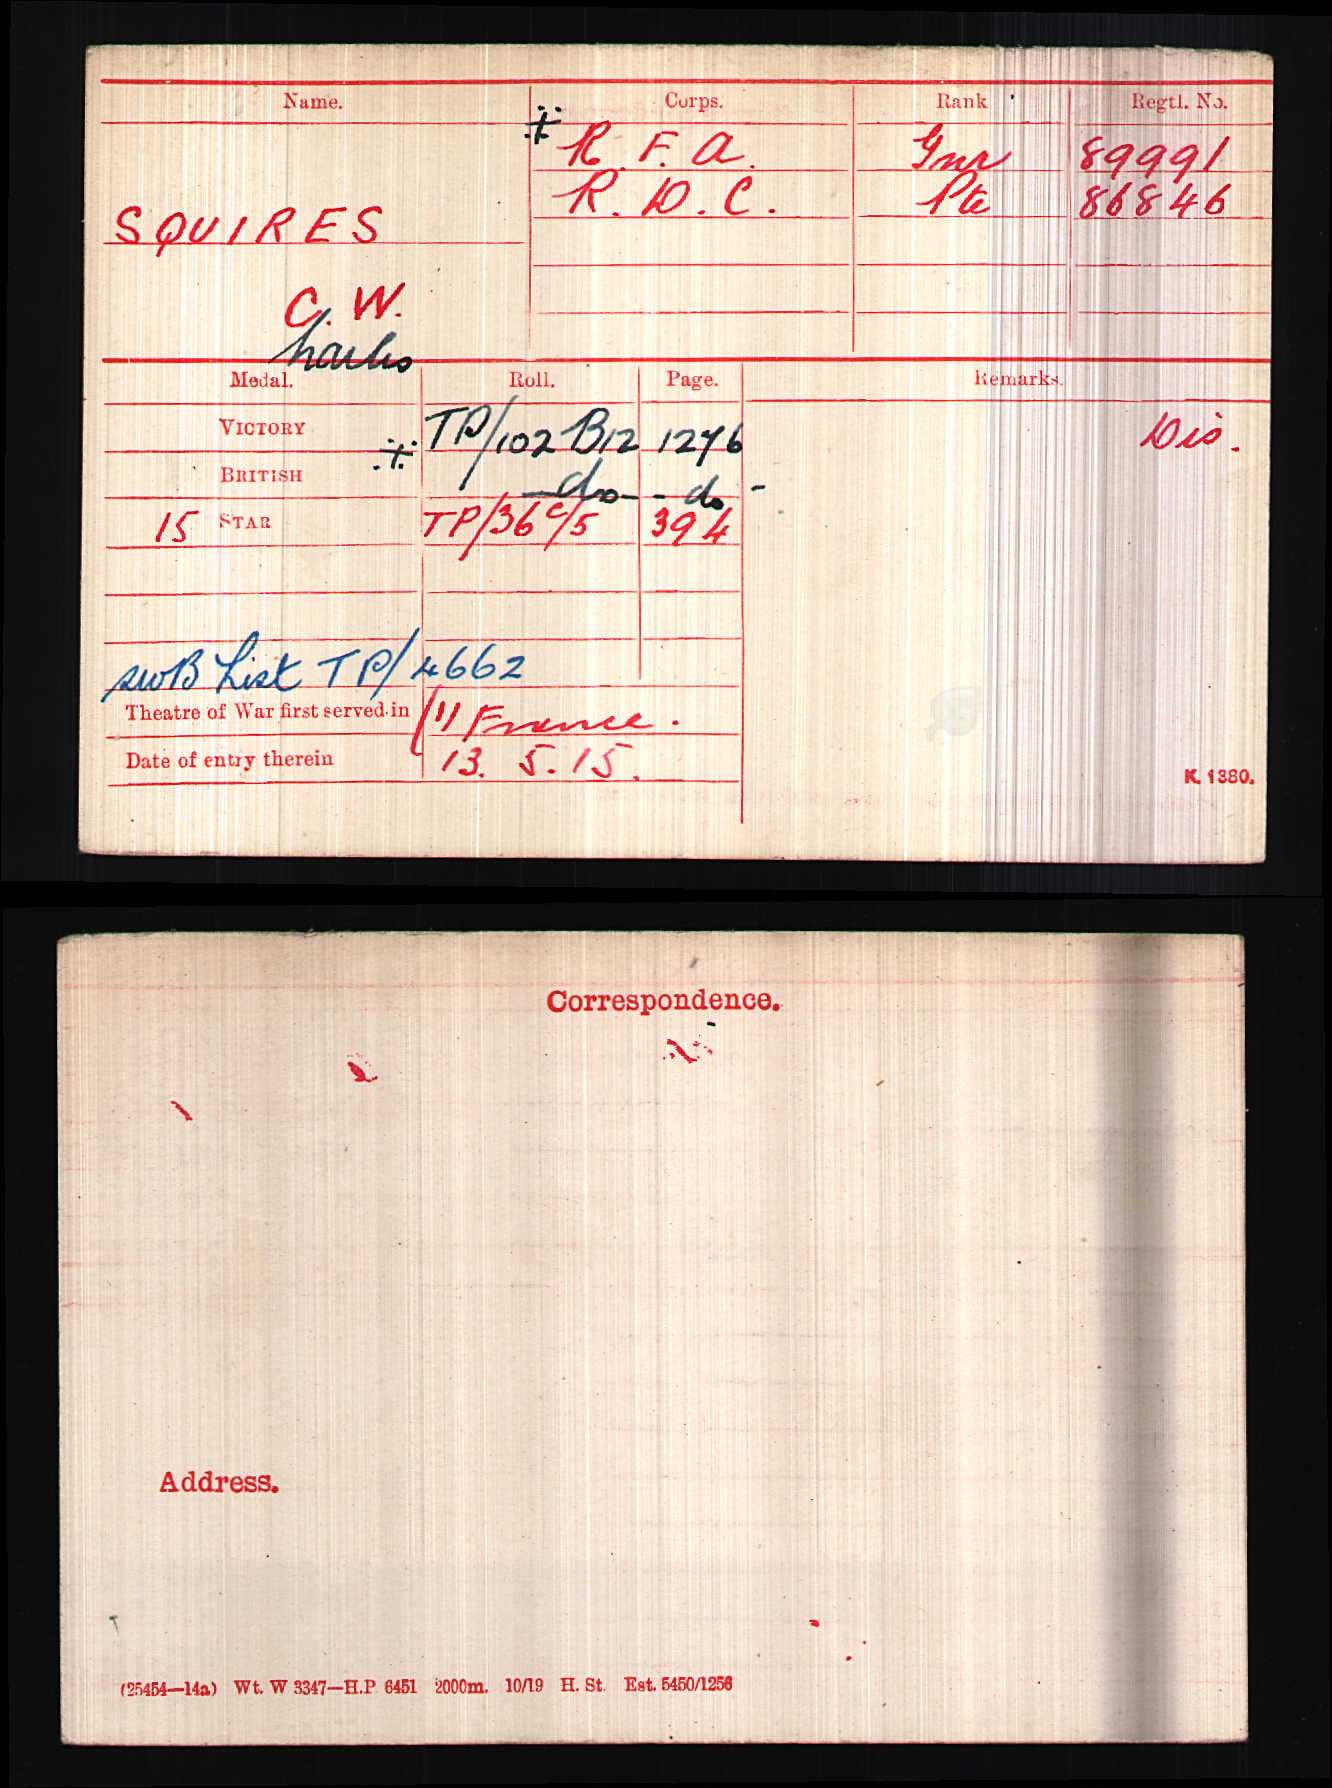 Name. Corps. Rank Regtl. No.
R. F. A. Gnr 89991
R. D. C. Pte 86846
SQUIRES
C. W.
harles
Medal. Roll. Page. Remarks.
VICTORY TP/102 B12 1276 Dis.
BRITISH -do- - do -
15 STAR TP/36 C/5 394
SWB List TP/4662
Theatre of War first served in (1) France.
Date of entry therein 13. 5. 15.
K. 1380.
Correspondence.
Address.
(25454—14a) Wt. W 3347—H.P. 6451 2000m. 10/19 H. St. Est. 5450/1256